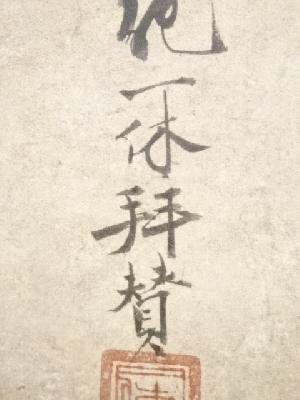 一休拜賛